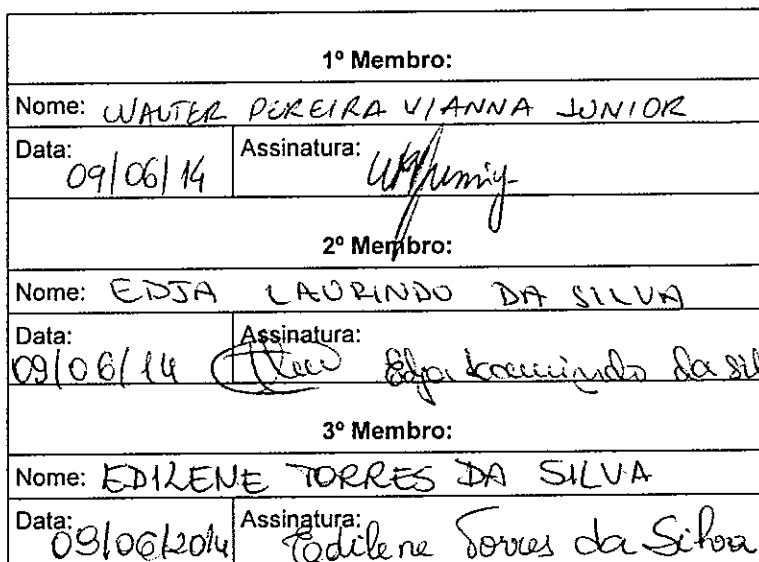 1º Membro:
Nome: WALTER PEREIRA VIANNA JUNIOR
Data: 09/06/14 Assinatura:
2º Membro:
Nome: EDJA LAURINDO DA SILVA
Data: 09/06/14 Assinatura: Edja Laurindo da sil
3º Membro:
Nome: EDILENE TORRES DA SILVA
Data: 09/06/2014 Assinatura: Edilene Torres da Silva